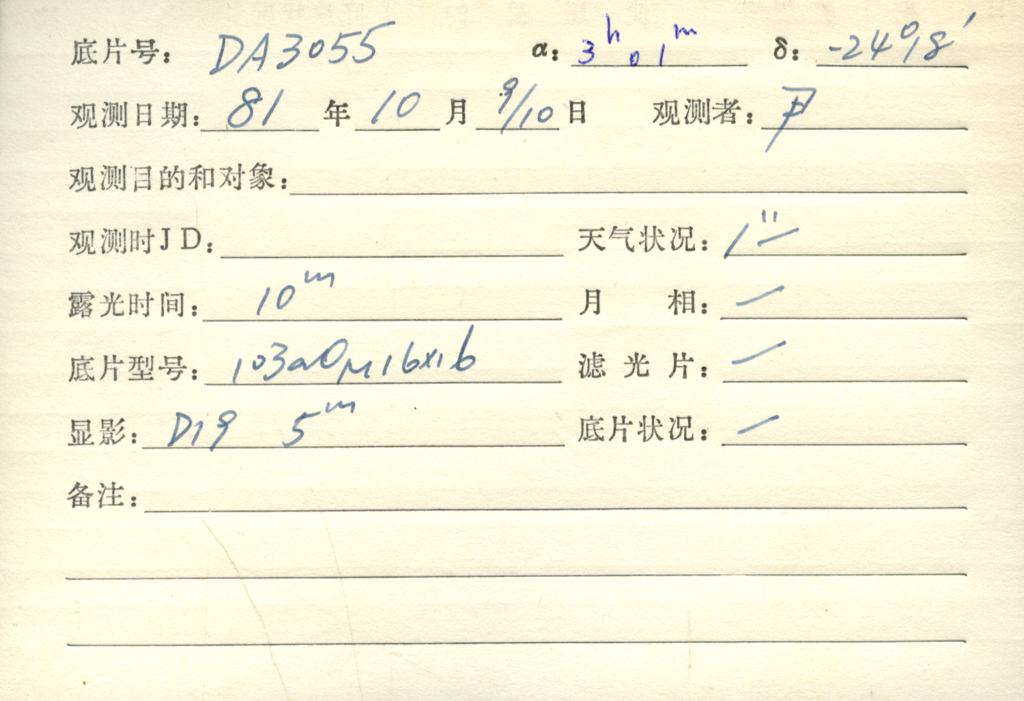 底片号: DA3055 α: 3h 01m δ: -24°18′
观测日期: 81 年 10 月 9/10 日 观测者:
观测目的和对象:
观测时JD:
天气状况: 1″—
露光时间: 10m 月 相: —
底片型号: 103aO 16x16 滤光片: —
显影: D19 5m 底片状况: —
备注: